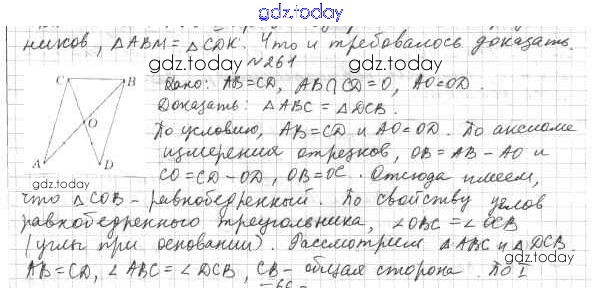 gdz.today
ников, △ABM = △CDK. Что и требовалось доказать.
gdz.today
№261
C B
Дано: AB=CD, AB∩CD=O, AO=OD.
gdz.today
Доказать: △ABC = △DCB.
O
По условию, AB=CD и AO=OD. По аксиоме
измерения отрезков, OB = AB - AO и
A D
gdz.today
CO=CD-OD, OB=OC. Отсюда имеем,
gdz.today
что △COB - равнобедренный. По свойству углов
равнобедренного треугольника, ∠OBC=∠OCB
gdz.today
(углы при основании). Рассмотрим △ABC и △DCB.
AB=CD, ∠ABC=∠DCB, CB - общая сторона. По I
gdz.today